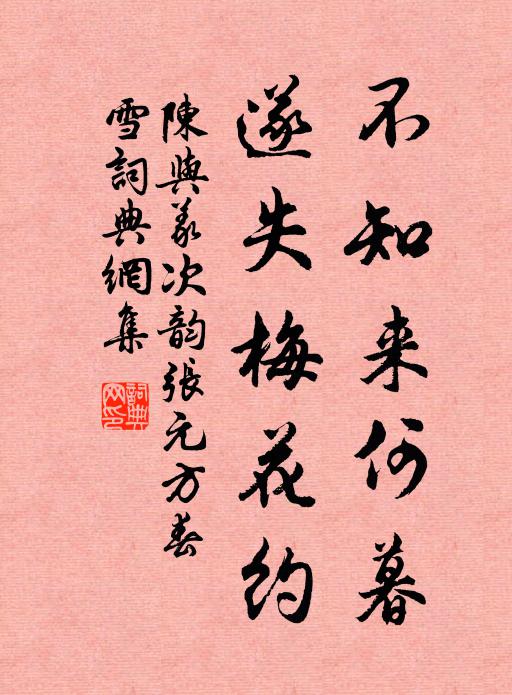 不知来何暮
遂失梅花约
陳與義次韵張元方春
雪詞典網集
詞典网印